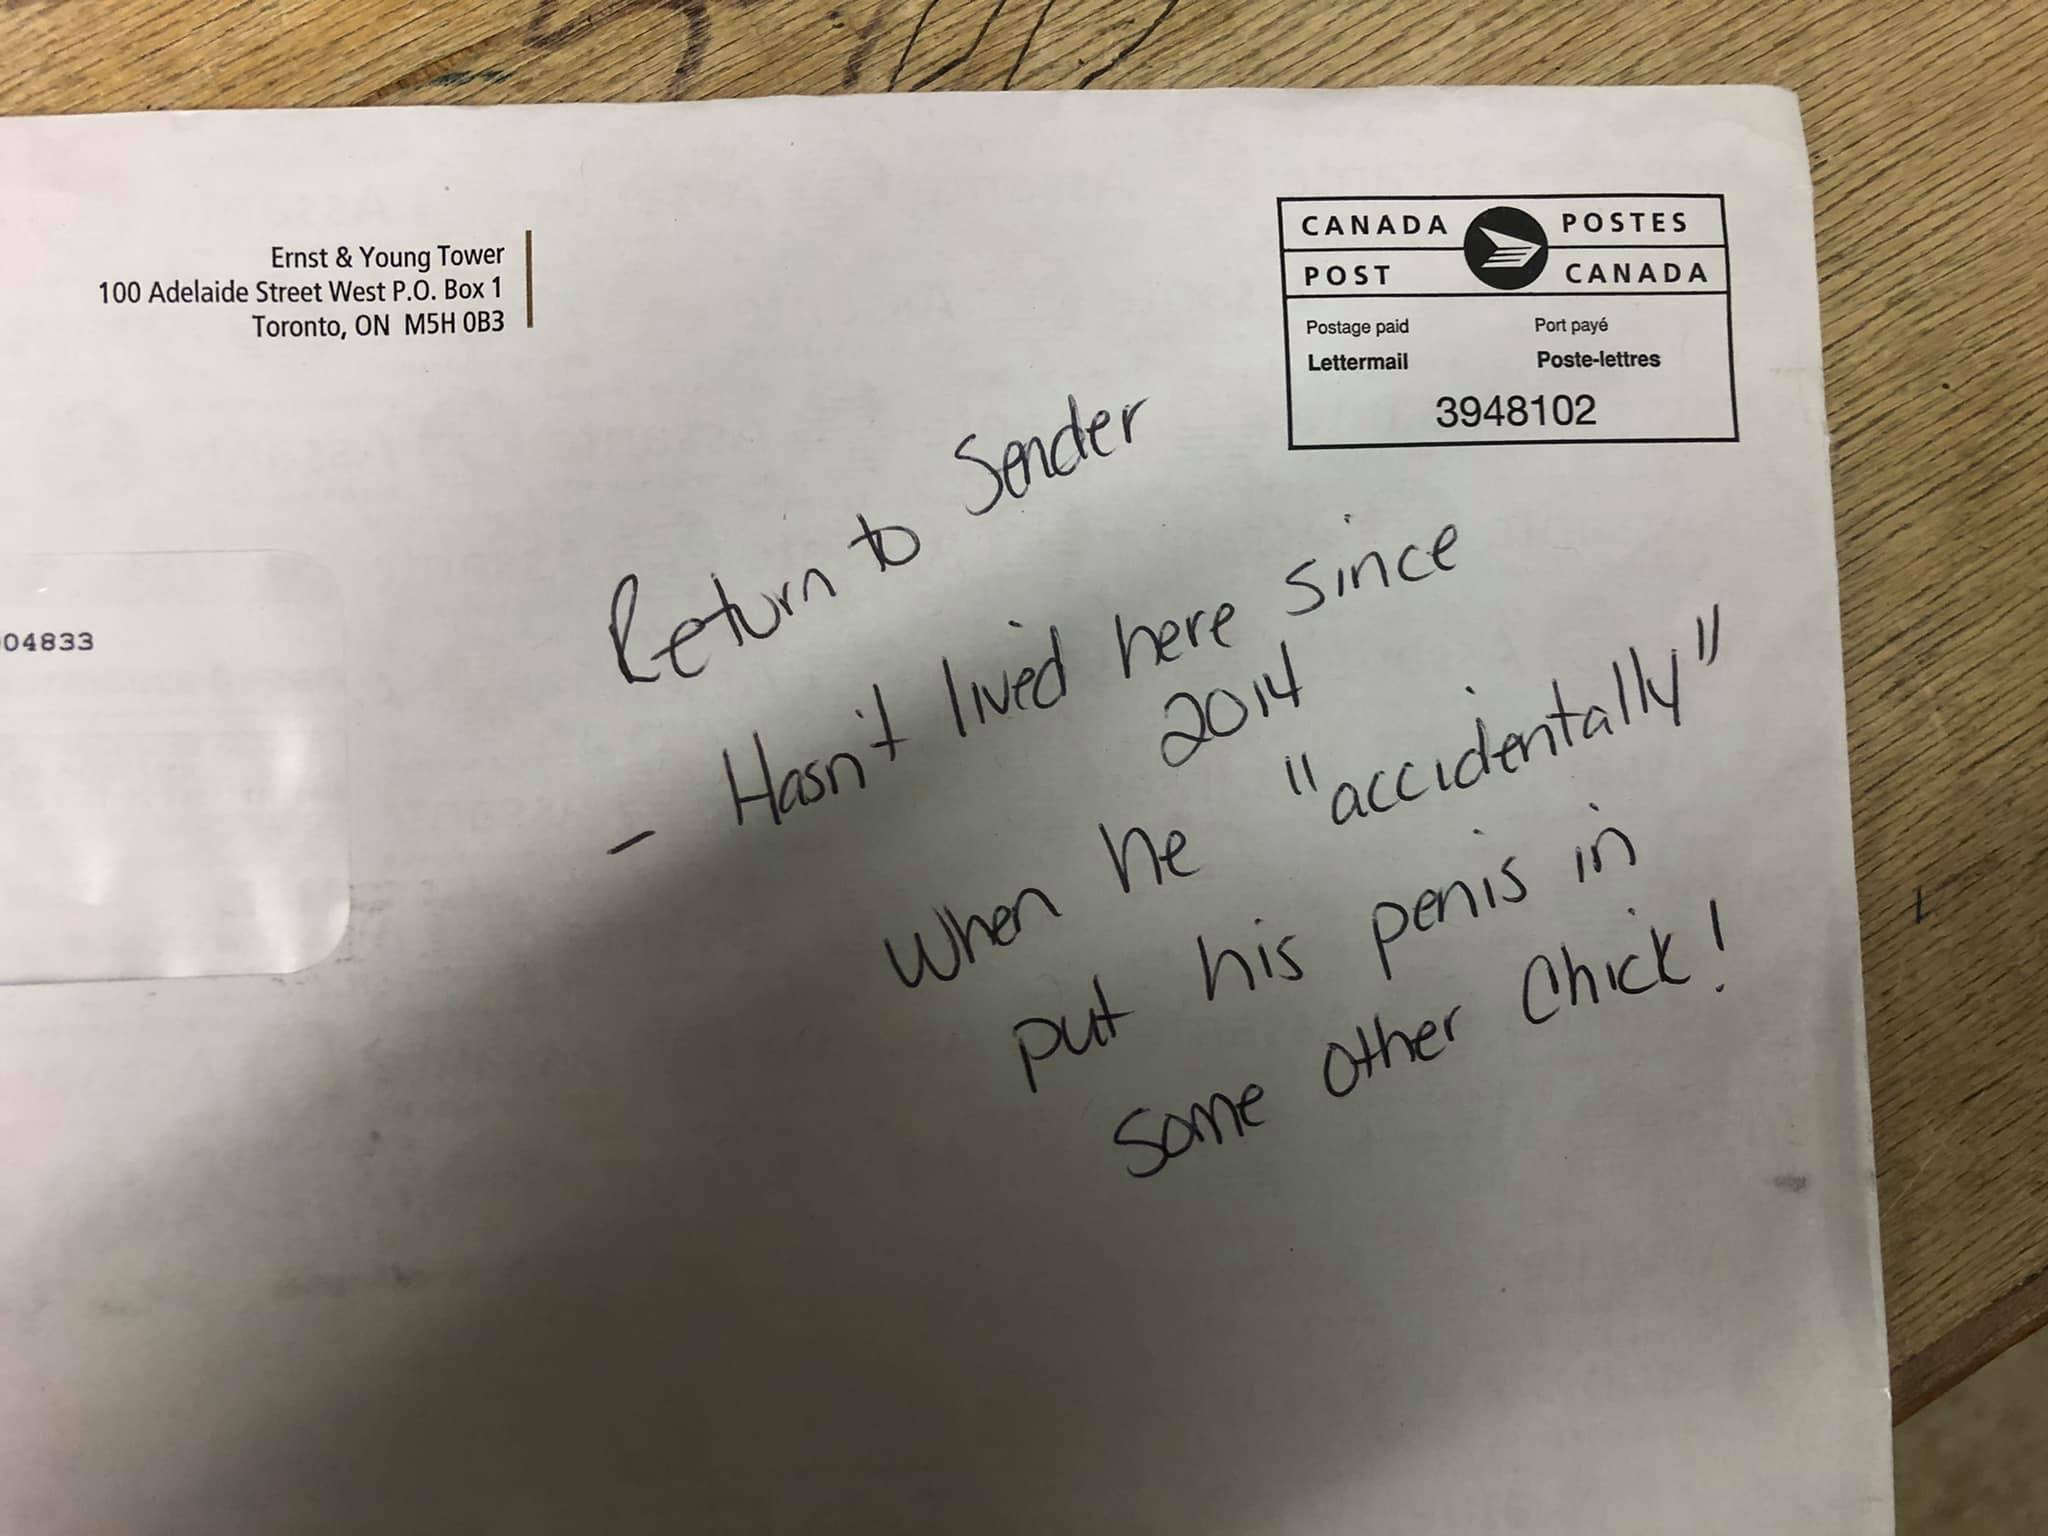 Ernst & Young Tower
100 Adelaide Street West P.O. Box 1
Toronto, ON M5H 0B3
CANADA POSTES
POST CANADA
Postage paid Port payé
Lettermail Poste-lettres
3948102
04833
Return to Sender
- Hasn't lived here since
2014
When he "accidentally"
put his penis in
some other Chick!